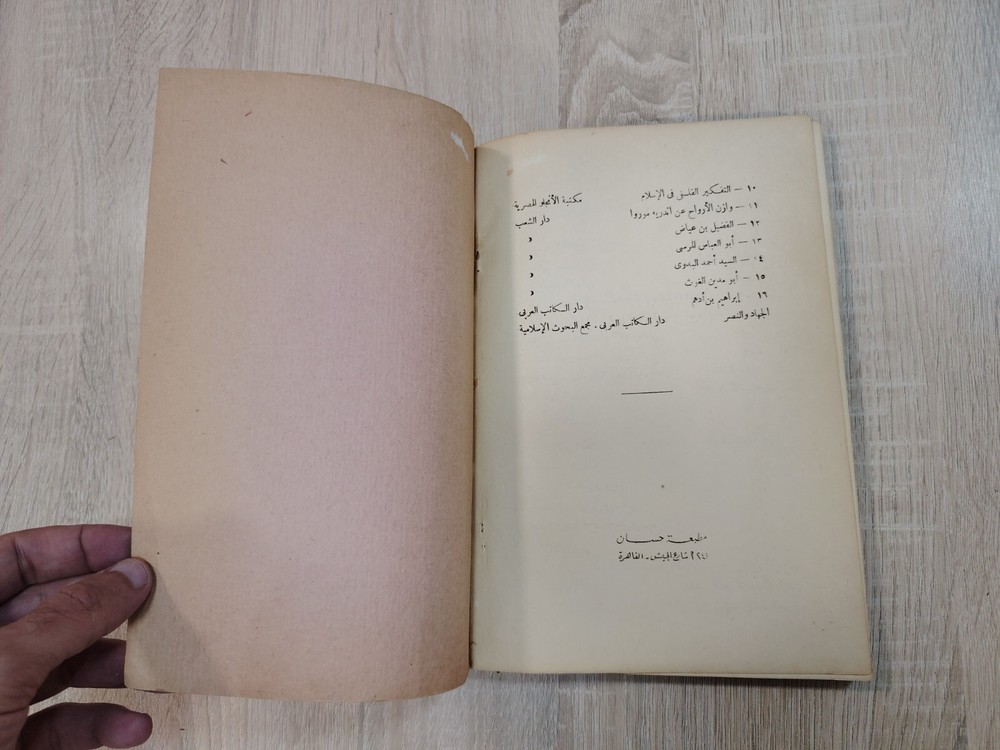 ١٠ — التفكير الفلسفى فى الإسلام مكتبة الأنجلو المصرية
١١ — وازن الأرواح عن أندريه موروا دار الشعب
١٢ — الفضيل بن عياض »
١٣ — أبو العباس المرسى »
١٤ — السيد أحمد البدوى »
١٥ — أبو مدين الغوث »
١٦ إبراهيم بن أدهم دار الكاتب العربى
الجهاد والنصر دار الكاتب العربى ، مجمع البحوث الإسلامية
مطبعة حسان
٢٤١ شارع الجيش - القاهرة